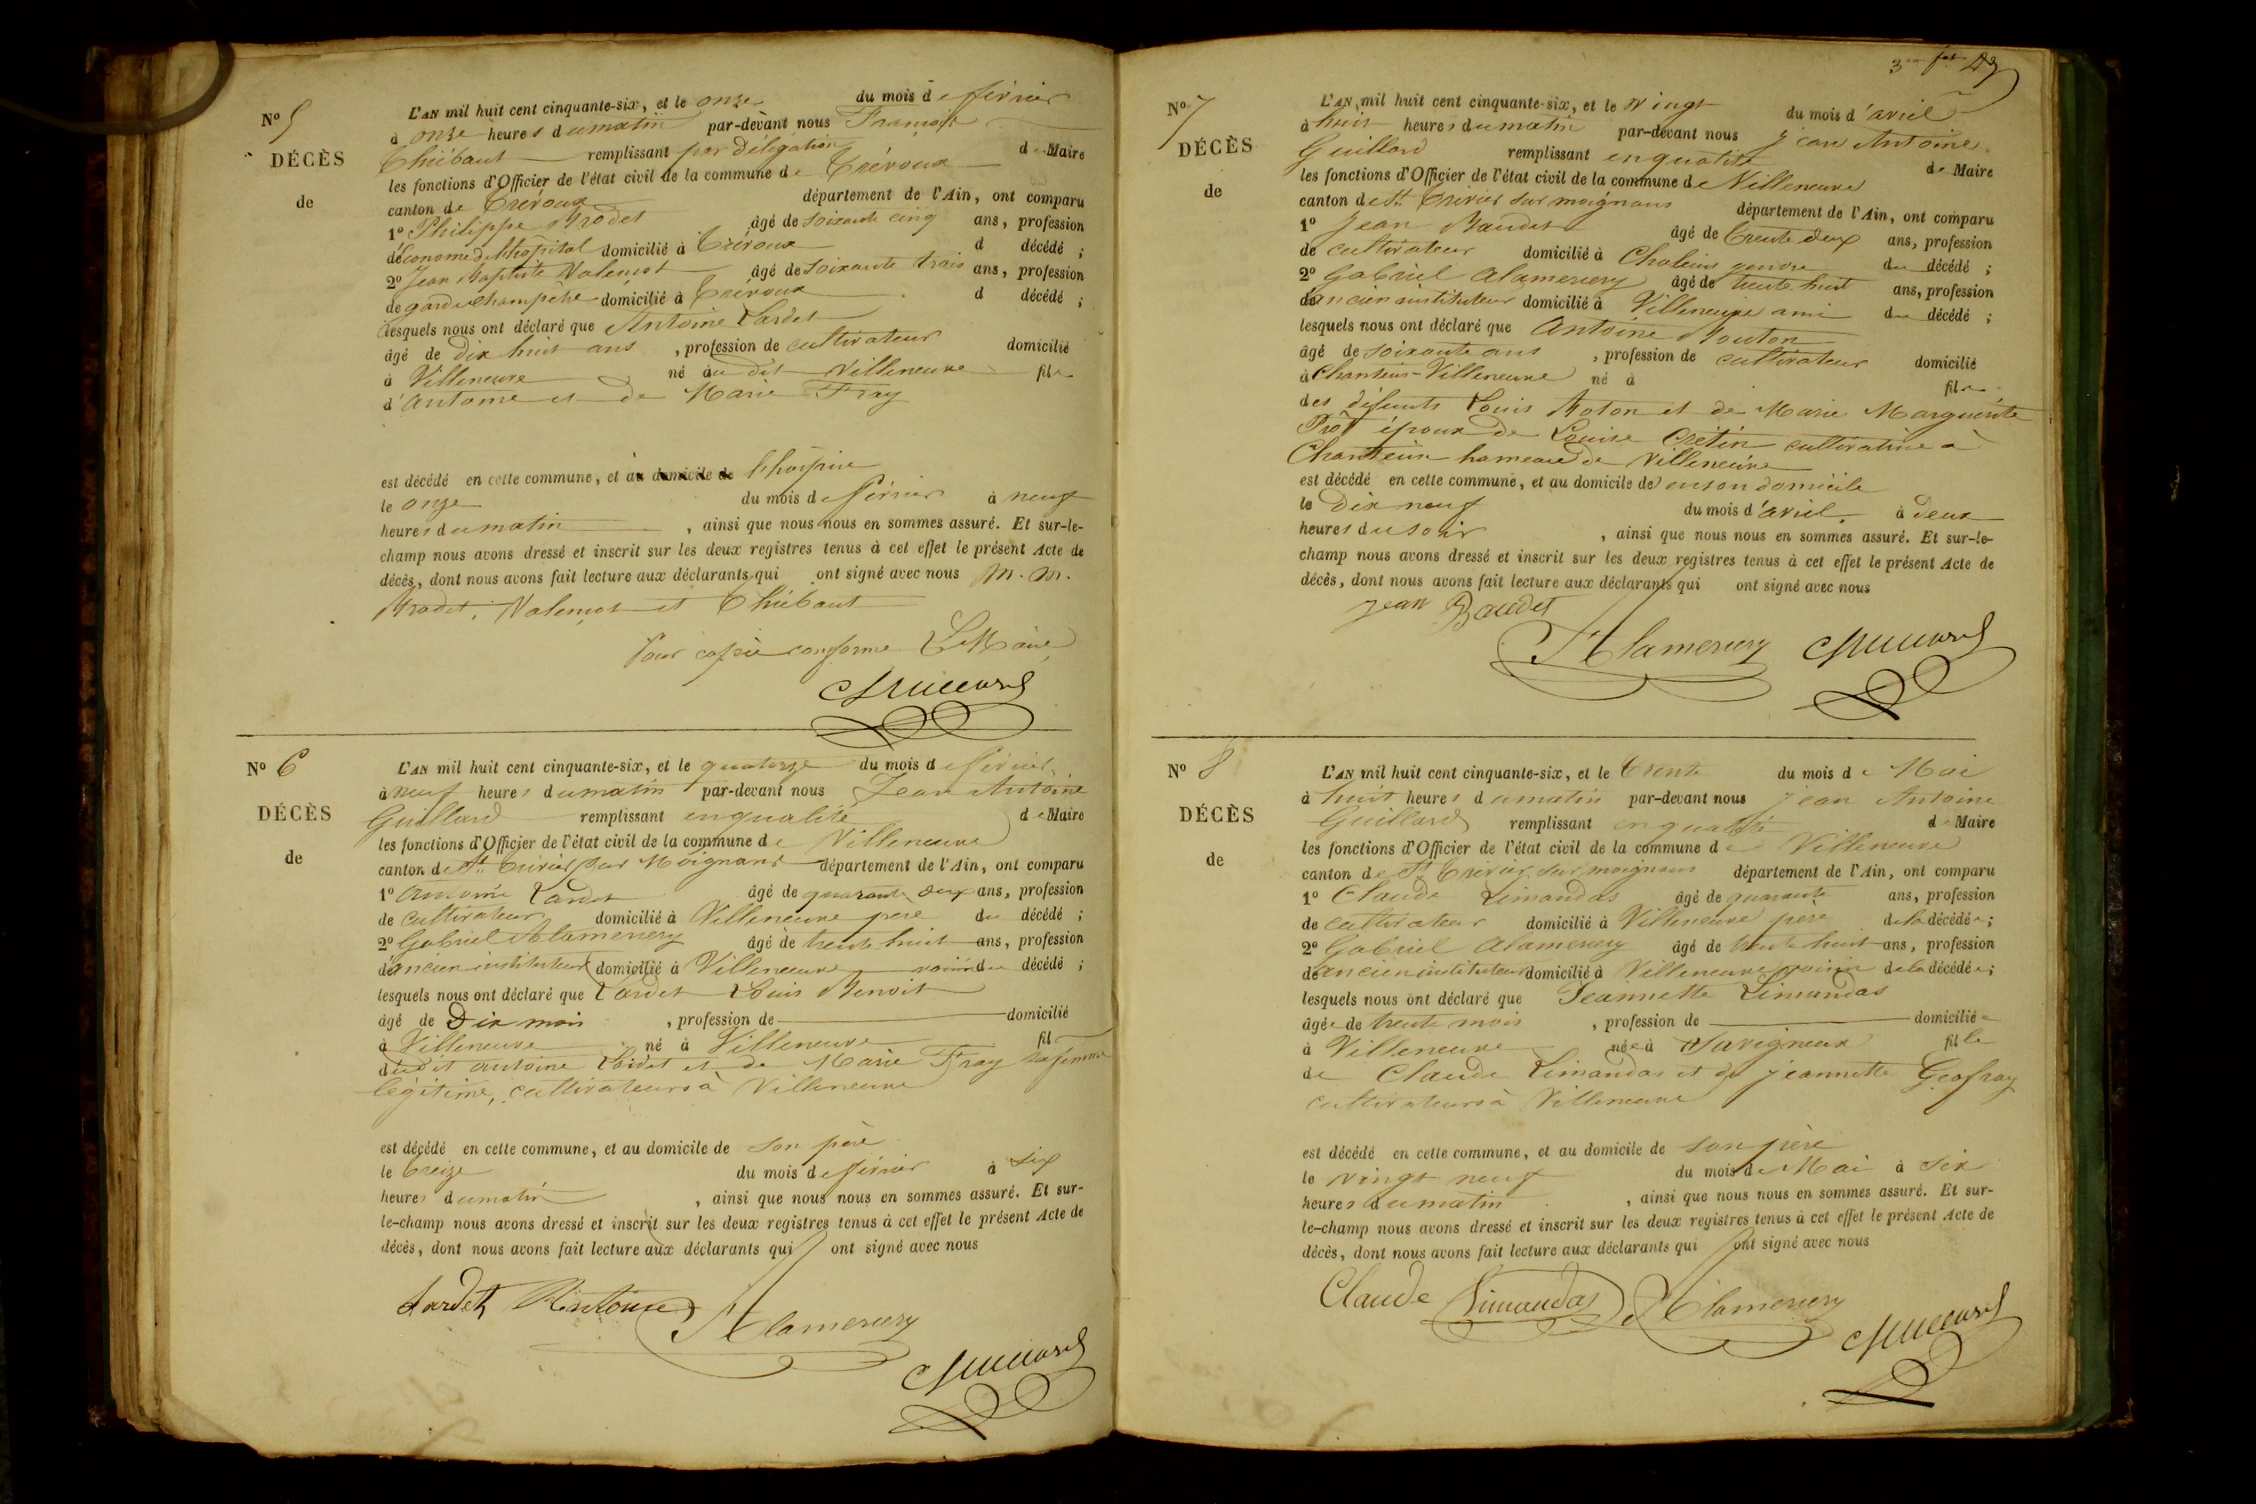 Nº 5
DÉCÈS
de
L'AN mil huit cent cinquante-six, et le onze du mois de février
à onze heures du matin par-devant nous François
Thiébaut remplissant par délégation de Maire
les fonctions d'Officier de l'état civil de la commune de Trévoux
canton de Trévoux département de l'Ain, ont comparu
1º Philippe Brodet âgé de soixante cinq ans, profession
d'économe de l'hôpital domicilié à Trévoux d décédé ;
2º Jean Baptiste Valençot âgé de soixante trois ans, profession
de garde champêtre domicilié à Trévoux d décédé ;
lesquels nous ont déclaré que Antoine Lardet
âgé de dix huit ans , profession de cultivateur domicilié
à Villeneuve né au dit Villeneuve fils
d'antoine et de Marie Fray
est décédé en cette commune, et au domicile de l'hospice
le onze du mois de février à neuf
heures du matin , ainsi que nous nous en sommes assuré. Et sur-le-
champ nous avons dressé et inscrit sur les deux registres tenus à cet effet le présent Acte de
décès, dont nous avons fait lecture aux déclarants qui ont signé avec nous M. M.
Brodet, Valençot et Thiébaut
Pour copie conforme Le Maire
Guillard
Nº 6
DÉCÈS
de
L'AN mil huit cent cinquante-six, et le quatorze du mois de février
à neuf heures du matin par-devant nous Jean Antoine
Guillard remplissant en qualité de Maire
les fonctions d'Officier de l'état civil de la commune de Villeneuve
canton de St Trivier sur Moignans département de l'Ain, ont comparu
1º Antoine Lardet âgé de quarante deux ans, profession
de cultivateur domicilié à Villeneuve père du décédé ;
2º Gabriel Alamercery âgé de trente huit ans, profession
d'ancien instituteur domicilié à Villeneuve voisin du décédé ;
lesquels nous ont déclaré que Lardet Louis Benoit
âgé de Dix mois , profession de domicilié
à Villeneuve né à Villeneuve fils
du dit antoine Lardet et de Marie Fray sa femme
légitime, cultivateurs à Villeneuve
est décédé en cette commune, et au domicile de son père
le treize du mois de février à six
heures du matin , ainsi que nous nous en sommes assuré. Et sur-
le-champ nous avons dressé et inscrit sur les deux registres tenus à cet effet le présent Acte de
décès, dont nous avons fait lecture aux déclarants qui ont signé avec nous
Lardet Antoine Alamercery
Guillard
Nº 7
DÉCÈS
de
L'AN mil huit cent cinquante-six, et le vingt du mois d'avril
à huit heures du matin par-devant nous jean Antoine
Guillard remplissant en qualité de Maire
les fonctions d'Officier de l'état civil de la commune de Villeneuve
canton de St Trivier sur moignans département de l'Ain, ont comparu
1º Jean Baudet âgé de trente deux ans, profession
de cultivateur domicilié à Chaleins gendre du décédé ;
2º Gabriel Alamercery âgé de trente huit ans, profession
d'ancien instituteur domicilié à Villeneuve ami du décédé ;
lesquels nous ont déclaré que Antoine Bouton
âgé de soixante ans , profession de cultivateur domicilié
à Chanteins-Villeneuve né à fils
des défunts Louis Boton et de Marie Marguerite
Prost époux de Louise Crétin cultivatrice à
Chanteins hameau de Villeneuve
est décédé en cette commune, et au domicile de en son domicile
le Dix neuf du mois d'avril à deux
heures du soir , ainsi que nous nous en sommes assuré. Et sur-le-
champ nous avons dressé et inscrit sur les deux registres tenus à cet effet le présent Acte de
décès, dont nous avons fait lecture aux déclarants qui ont signé avec nous
jean Baudet
Alamercery Guillard
Nº 8
DÉCÈS
de
L'AN mil huit cent cinquante-six, et le trente du mois de Mai
à huit heures du matin par-devant nous jean Antoine
Guillard remplissant en qualité de Maire
les fonctions d'Officier de l'état civil de la commune de Villeneuve
canton de St Trivier sur moignans département de l'Ain, ont comparu
1º Claude Limandas âgé de quarante ans, profession
de cultivateur domicilié à Villeneuve père de la décédée ;
2º Gabriel Alamercery âgé de trente huit ans, profession
de ancien instituteur domicilié à Villeneuve voisin de la décédée ;
lesquels nous ont déclaré que Jeannette Limandas
âgée de trente mois , profession de domiciliée
à Villeneuve née à Savigneux fille
de Claude Limandas et de jeannette Geofray
cultivateurs à Villeneuve
est décédé en cette commune, et au domicile de son père
le vingt neuf du mois de Mai à six
heures du matin , ainsi que nous nous en sommes assuré. Et sur-
le-champ nous avons dressé et inscrit sur les deux registres tenus à cet effet le présent Acte de
décès, dont nous avons fait lecture aux déclarants qui ont signé avec nous
Claude Limandas Alamercery
Guillard